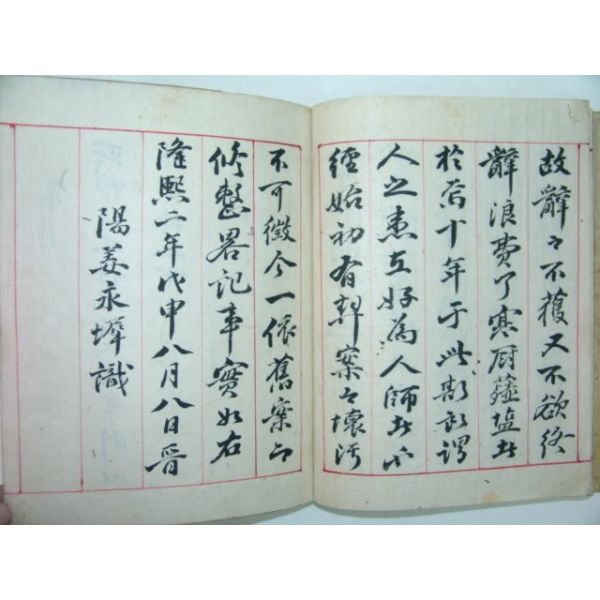 故辭〻不獲又不欲終
辭浪費了寒厨薤塩者
於焉十年于此斯所謂
人之患在好為人師者
經始初有契案〻壞污
不可徵今一依舊案而
修整畧記事實如右
隆熙二年戊申八月八日晉
陽姜永墀識